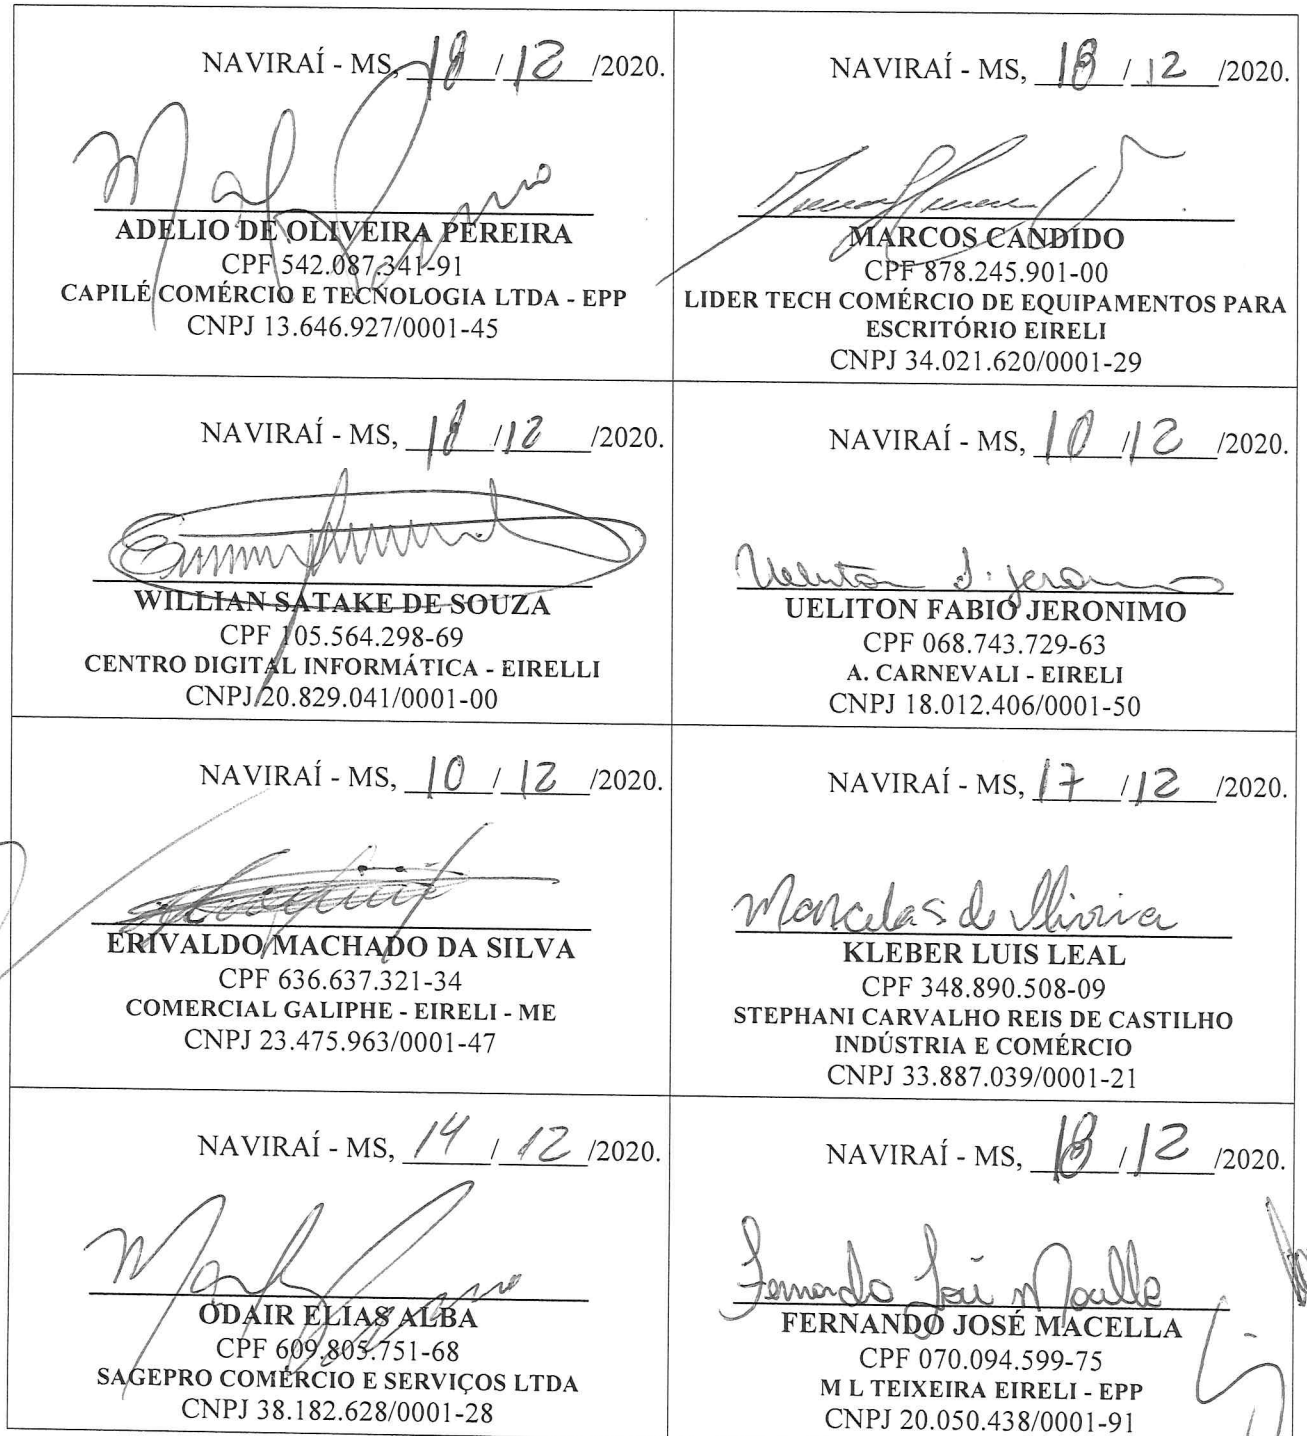 NAVIRAÍ - MS, 18 / 12 /2020.
ADELIO DE OLIVEIRA PEREIRA
CPF 542.087.341-91
CAPILÉ COMÉRCIO E TECNOLOGIA LTDA - EPP
CNPJ 13.646.927/0001-45
NAVIRAÍ - MS, 18 / 12 /2020.
MARCOS CANDIDO
CPF 878.245.901-00
LIDER TECH COMÉRCIO DE EQUIPAMENTOS PARA
ESCRITÓRIO EIRELI
CNPJ 34.021.620/0001-29
NAVIRAÍ - MS, 18 / 12 /2020.
WILLIAN SATAKE DE SOUZA
CPF 105.564.298-69
CENTRO DIGITAL INFORMÁTICA - EIRELLI
CNPJ 20.829.041/0001-00
NAVIRAÍ - MS, 10 / 12 /2020.
Ueliton F. Jeronimo
UELITON FABIO JERONIMO
CPF 068.743.729-63
A. CARNEVALI - EIRELI
CNPJ 18.012.406/0001-50
NAVIRAÍ - MS, 10 / 12 /2020.
ERIVALDO MACHADO DA SILVA
CPF 636.637.321-34
COMERCIAL GALIPHE - EIRELI - ME
CNPJ 23.475.963/0001-47
NAVIRAÍ - MS, 17 / 12 /2020.
Marcela S de Oliveira
KLEBER LUIS LEAL
CPF 348.890.508-09
STEPHANI CARVALHO REIS DE CASTILHO
INDÚSTRIA E COMÉRCIO
CNPJ 33.887.039/0001-21
NAVIRAÍ - MS, 14 / 12 /2020.
ODAIR ELIAS ALBA
CPF 609.805.751-68
SAGEPRO COMÉRCIO E SERVIÇOS LTDA
CNPJ 38.182.628/0001-28
NAVIRAÍ - MS, 18 / 12 /2020.
Fernando José Macella
FERNANDO JOSÉ MACELLA
CPF 070.094.599-75
M L TEIXEIRA EIRELI - EPP
CNPJ 20.050.438/0001-91